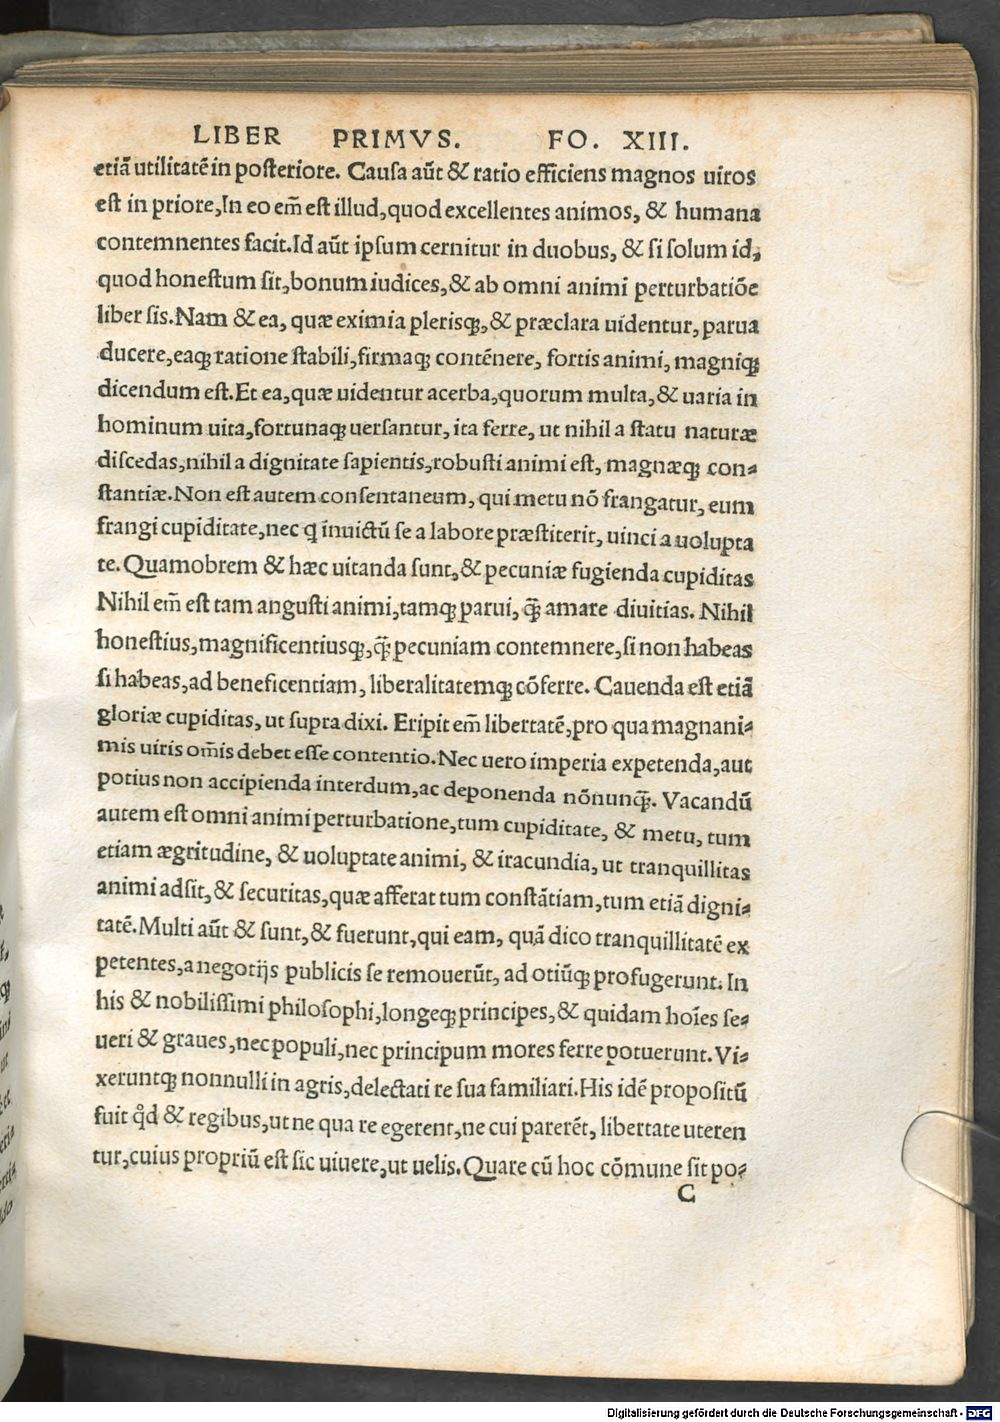 LIBER PRIMVS. FO. XIII.
etiã utilitatẽ in poſteriore. Cauſa aũt & ratio efficiens magnos uiros
eſt in priore, In eo em̃ eſt illud, quod excellentes animos, & humana
contemnentes facit. Id aũt ipſum cernitur in duobus, & ſi ſolum id,
quod honeſtum ſit, bonum iudices, & ab omni animi perturbatiõe
liber ſis. Nam & ea, quæ eximia pleriſqꝫ, & præclara uidentur, parua
ducere, eaqꝫ ratione ſtabili, firmaqꝫ contẽnere, fortis animi, magniqꝫ
dicendum eſt. Et ea, quæ uidentur acerba, quorum multa, & uaria in
hominum uita, fortunaqꝫ uerſantur, ita ferre, ut nihil a ſtatu naturæ
diſcedas, nihil a dignitate ſapientis, robuſti animi eſt, magnæqꝫ con⸗
ſtantiæ. Non eſt autem conſentaneum, qui metu nõ frangatur, eum
frangi cupiditate, nec q inuictũ ſe a labore præſtiterit, uinci a uolupta
te. Quamobrem & hæc uitanda ſunt, & pecuniæ fugienda cupiditas
Nihil em̃ eſt tam anguſti animi, tamqꝫ parui, q̃ꝫ amare diuitias. Nihil
honeſtius, magnificentiusqꝫ, q̃ꝫ pecuniam contemnere, ſi non habeas
ſi habeas, ad beneficentiam, liberalitatemqꝫ cõferre. Cauenda eſt etiã
gloriæ cupiditas, ut ſupra dixi. Eripit em̃ libertatẽ, pro qua magnani⸗
mis uiris om̃is debet eſſe contentio. Nec uero imperia expetenda, aut
potius non accipienda interdum, ac deponenda nõnunq̃ꝫ. Vacandũ
autem eſt omni animi perturbatione, tum cupiditate, & metu, tum
etiam ægritudine, & uoluptate animi, & iracundia, ut tranquillitas
animi adſit, & ſecuritas, quæ afferat tum conſtãtiam, tum etiã digni⸗
tatẽ. Multi aũt & ſunt, & fuerunt, qui eam, quã dico tranquillitatẽ ex
petentes, a negotijs publicis ſe remouerũt, ad otiũqꝫ profugerunt. In
his & nobiliſſimi philoſophi, longeqꝫ principes, & quidam hoĩes ſe⸗
ueri & graues, nec populi, nec principum mores ferre potuerunt. Vi⸗
xeruntqꝫ nonnulli in agris, delectati re ſua familiari. His idẽ propoſitũ
fuit qd̕ & regibus, ut ne qua re egerent, ne cui parerẽt, libertate uteren
tur, cuius propriũ eſt ſic uiuere, ut uelis. Quare cũ hoc cõmune ſit po⸗
C
Digitalisierung gefördert durch die Deutsche Forschungsgemeinschaft - DFG